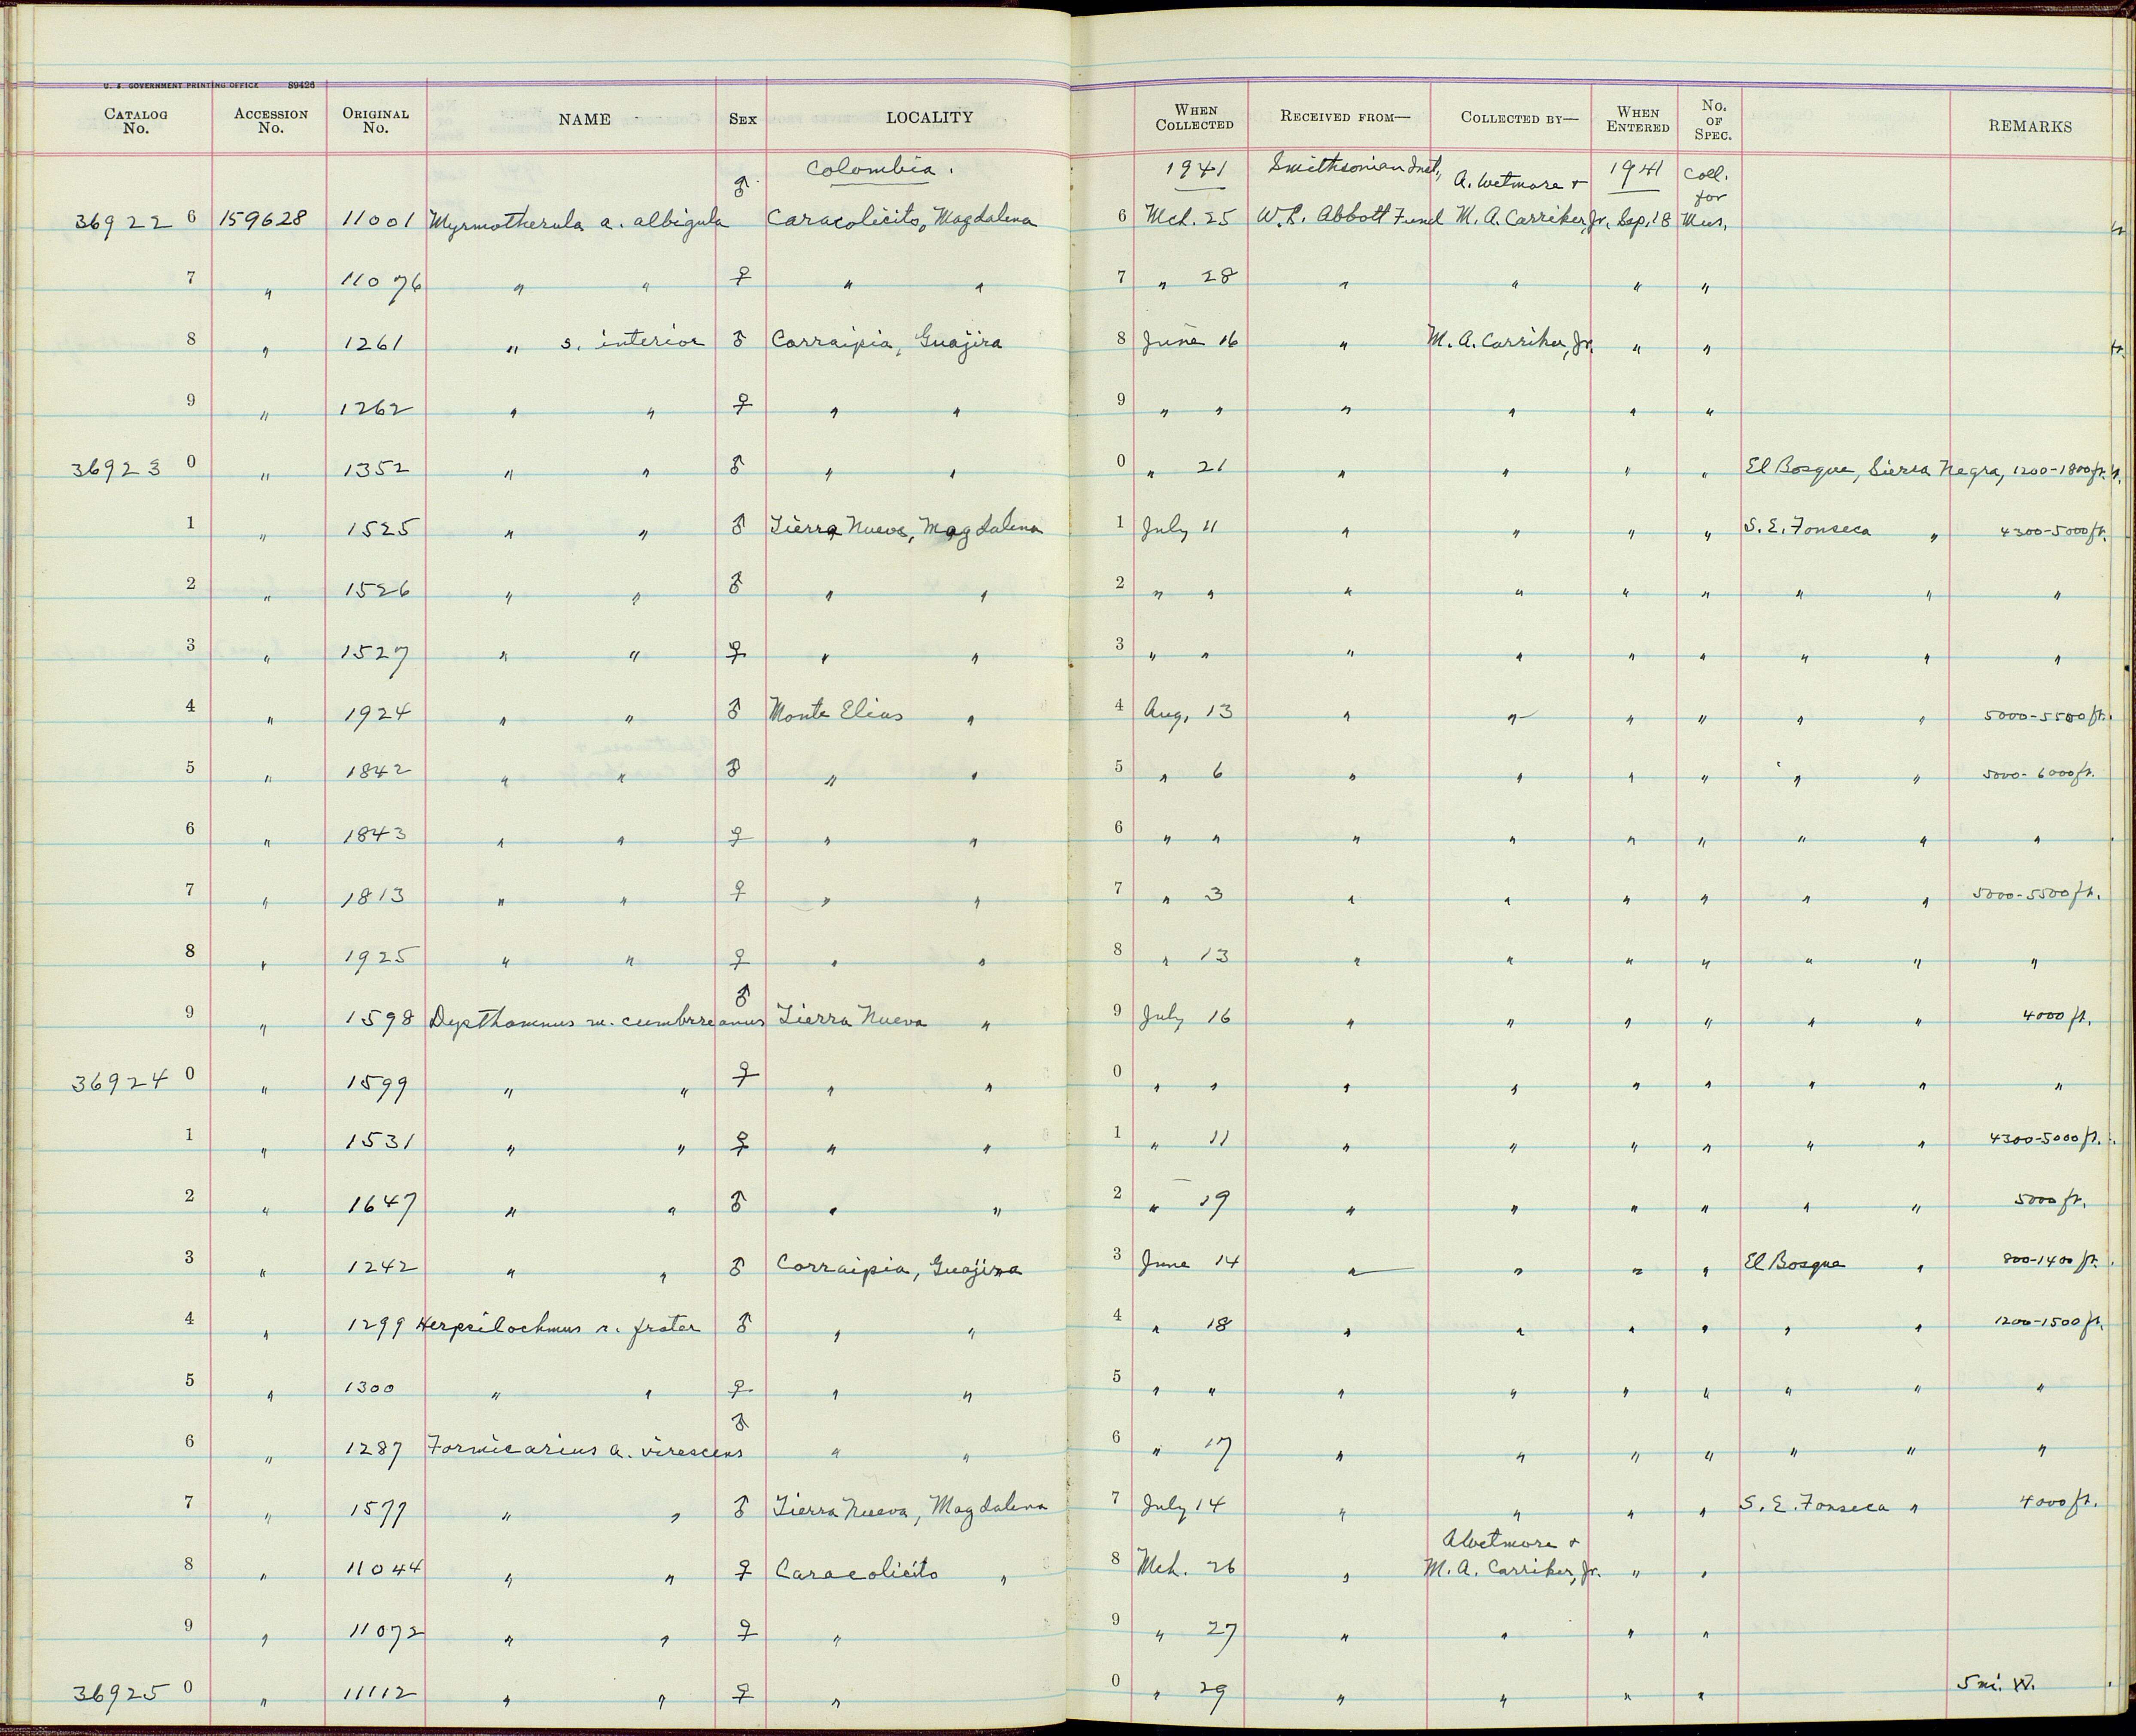 U. S. GOVERNMENT PRINTING OFFICE 89426
CATALOG No. ACCESSION No. ORIGINAL No. NAME SEX LOCALITY WHEN COLLECTED RECEIVED FROM— COLLECTED BY— WHEN ENTERED No. OF SPEC. REMARKS
Colombia. 1941 Smithsonian Inst., A. Wetmore + 1941 Coll. for
36922 6 159628 11001 Myrmotherula a. albigula ♂ Caracolicito, Magdalena 6 Mch. 25 W. L. Abbott Fund M. A. Carriker, Jr. Sep. 18 Mus.
7 " 11076 " " ♀ " " 7 " 28 " " " "
8 " 1261 " s. interior ♂ Carraipia, Guajira 8 June 16 " M. A. Carriker, Jr. " "
9 " 1262 " " ♀ " " 9 " " " " " "
36923 0 " 1352 " " ♂ " " 0 " 21 " " " " El Bosque, Sierra Negra, 1200-1800 ft.
1 " 1525 " " ♂ Tierra Nueva, Magdalena 1 July 11 " " " " S. E. Fonseca " 4300-5000 ft.
2 " 1526 " " ♂ " " 2 " " " " " " " " "
3 " 1527 " " ♀ " " 3 " " " " " " " " "
4 " 1924 " " ♂ Monte Elias " 4 Aug. 13 " " " " " " 5000-5500 ft.
5 " 1842 " " ♂ " " 5 " 6 " " " " " " 5000-6000 ft.
6 " 1843 " " ♀ " " 6 " " " " " " " " "
7 " 1813 " " ♀ " " 7 " 3 " " " " " " 5000-5500 ft.
8 " 1925 " " ♀ " " 8 " 13 " " " " " " "
9 " 1598 Dysthamnus m. cumbreanus ♂ Tierra Nueva " 9 July 16 " " " " " " 4000 ft.
36924 0 " 1599 " " ♀ " " 0 " " " " " " " " "
1 " 1531 " " ♀ " " 1 " 11 " " " " " " 4300-5000 ft.
2 " 1647 " " ♂ " " 2 " 19 " " " " " " 5000 ft.
3 " 1242 " " ♂ Carraipia, Guajira 3 June 14 " " " " El Bosque " 800-1400 ft.
4 " 1299 Herpsilochmus r. frater ♂ " " 4 " 18 " " " " " " 1200-1500 ft.
5 " 1300 " " ♀ " " 5 " " " " " " " " "
6 " 1287 Formicarius a. virescens ♂ " " 6 " 17 " " " " " " "
7 " 1577 " " ♂ Tierra Nueva, Magdalena 7 July 14 " " " " S. E. Fonseca " 4000 ft.
A Wetmore +
8 " 11044 " " ♀ Caracolicito " 8 Mch. 26 " M. A. Carriker, Jr. " "
9 " 11072 " " ♀ " 9 " 27 " " " "
36925 0 " 11112 " " ♀ " 0 " 29 " " " " 5 mi. W.